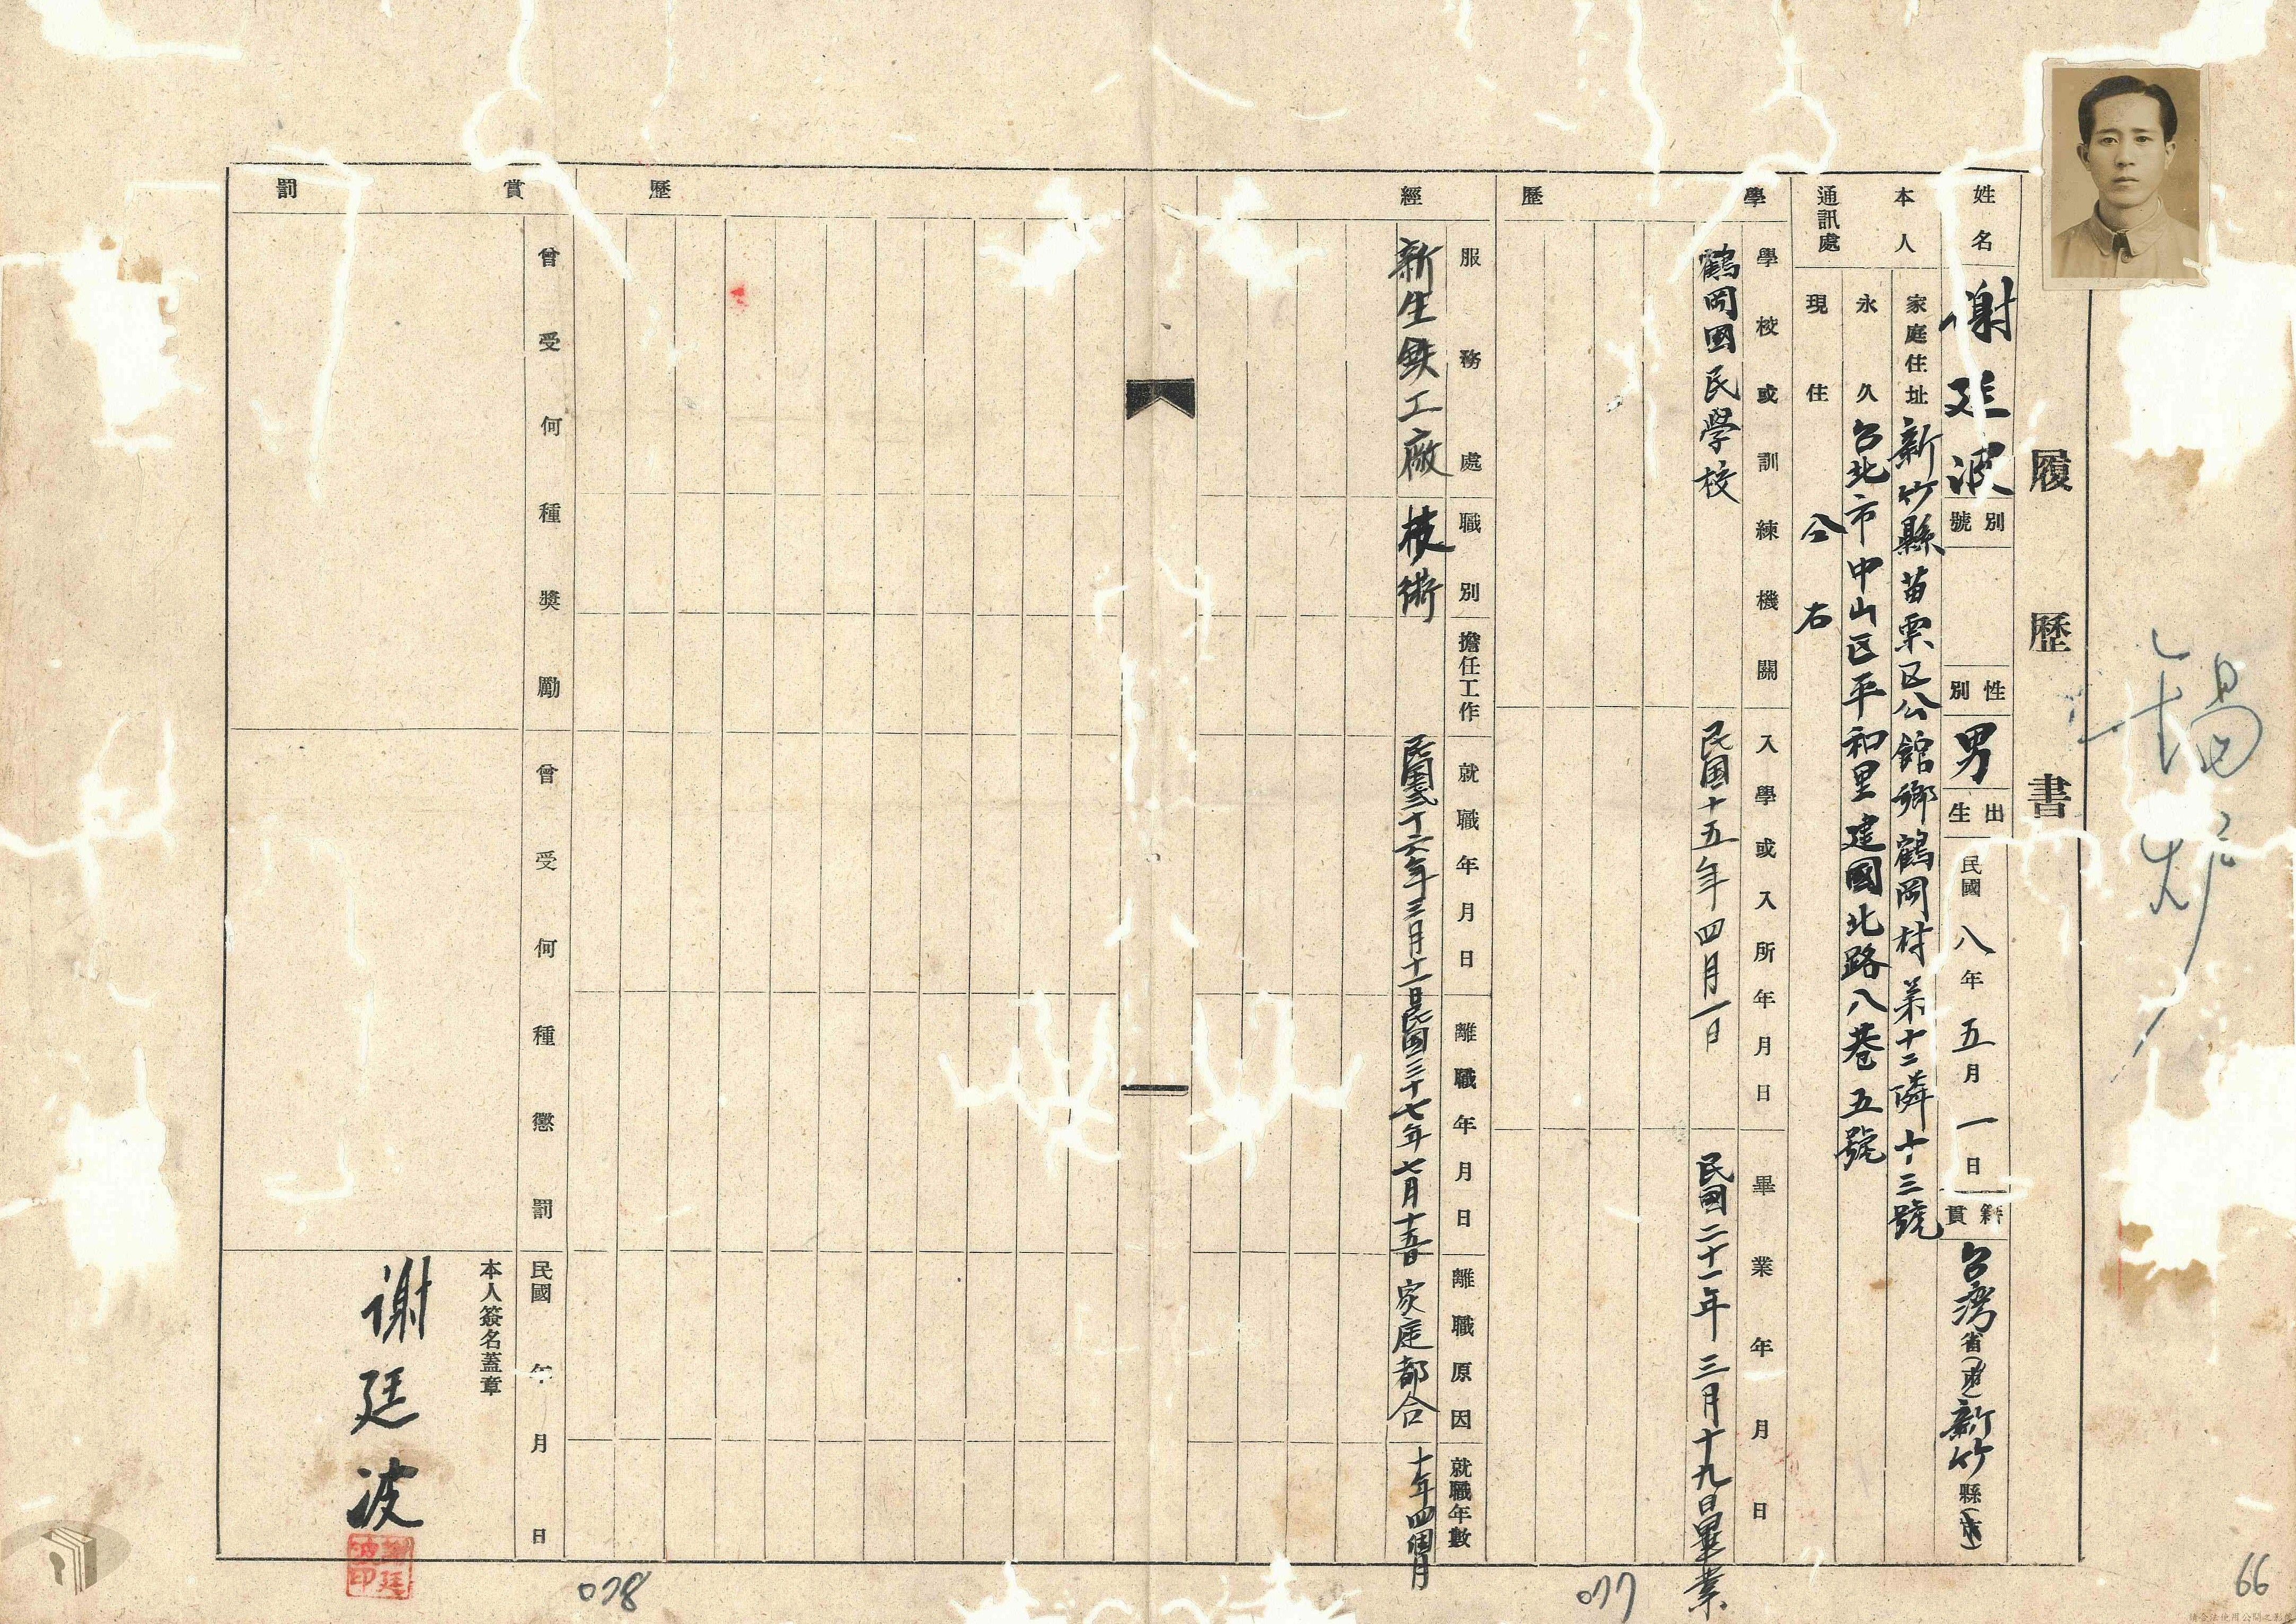 履歷書
姓名 謝廷波 別號 性別 男 出生 民國八年五月一日 籍貫 台灣省(市)新竹縣(市)
本人通訊處
家庭住址 新竹縣苗栗区公館鄉鶴岡村第十二隣十三號
永久 台北市中山区平和里建國北路八巷五號
現住 仝右
學歷
學校或訓練機關 入學或入所年月日 畢業年月日
鶴岡國民學校 民国十五年四月一日 民國二十一年三月十九日畢業
經歷
服務處 職別 擔任工作 就職年月日 離職年月日 離職原因 就職年數
新生鉄工廠 技術 民國弍十六年三月十一日 民國三十七年七月十五日 家庭都合 十年四個月
賞罰
曾受何種獎勵 曾受何種懲罰 民國 年 月 日
本人簽名蓋章
謝廷波
謝廷波印
錫炉
078
077
66